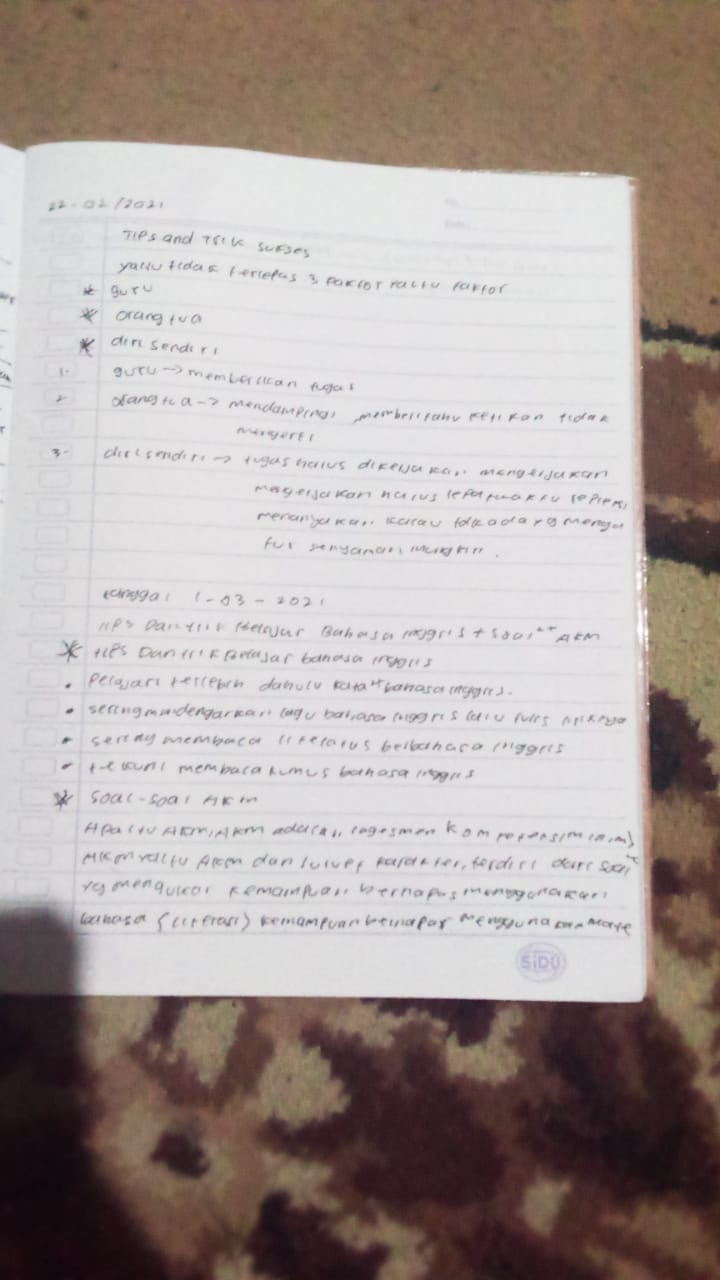 22-02/2021
TIPS and TRIK SUKSES
yaitu tidak terlepas 3 faktor yaitu faktor
* guru
* orang tua
* diri sendiri
1. guru -> memberikan tugas
2. orang tua -> mendampingi memberitahu ketikan tidak
mengerti
3. diri sendiri -> tugas harus dikerjakan mengerjakan
mengerjakan harus
menanyakan kalau yg
.
tanggal 1-03-2021
TIPS Dan trik Belajar Bahasa inggris + soal" AKM
* TIPS Dan trik Belajar bahasa inggris
• Pelajari terlebih dahulu kata" bahasa inggris.
• sering mendengarkan lagu bahasa inggris lalu tulis
• sering membaca berbahasa inggris
• tekuni membaca kumus bahasa inggris
* Soal-soal AKM
Apa itu AKM, AKM adalah kompetensi
AKM yaitu AKM dan karakter, terdiri dari soal"
yg mengukur kemampuan menggunakan
bahasa (literasi) kemampuan menggunakan mate
SiDU